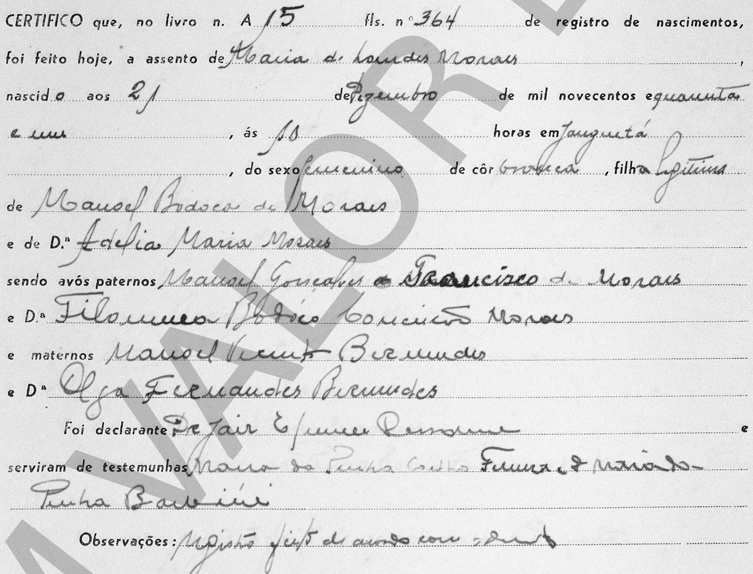 CERTIFICO que, no livro n. A 15 fls. nº 364 de registro de nascimentos,
foi feito hoje, a assento de Maria de Lourdes Morais,
nascido aos 21 de Dezembro de mil novecentos e quarenta
e um, ás 10 horas em
, do sexo feminino de côr branca, filha legitima
de Manoel Bodoca de Morais
e de D.ª Adelia Maria Morais
sendo avós paternos Manoel Gonçalves Francisco de Morais
e D.ª Filomena Conceição Morais
e maternos Manoel Vicente Bermudes
e Dª Olga Fernandes Bermudes
Foi declarante: Dr Jair e
serviram de testemunhas Maria da Penha Coelho e Maria da
Penha
Observações: Registro feito de acordo com
VALOR